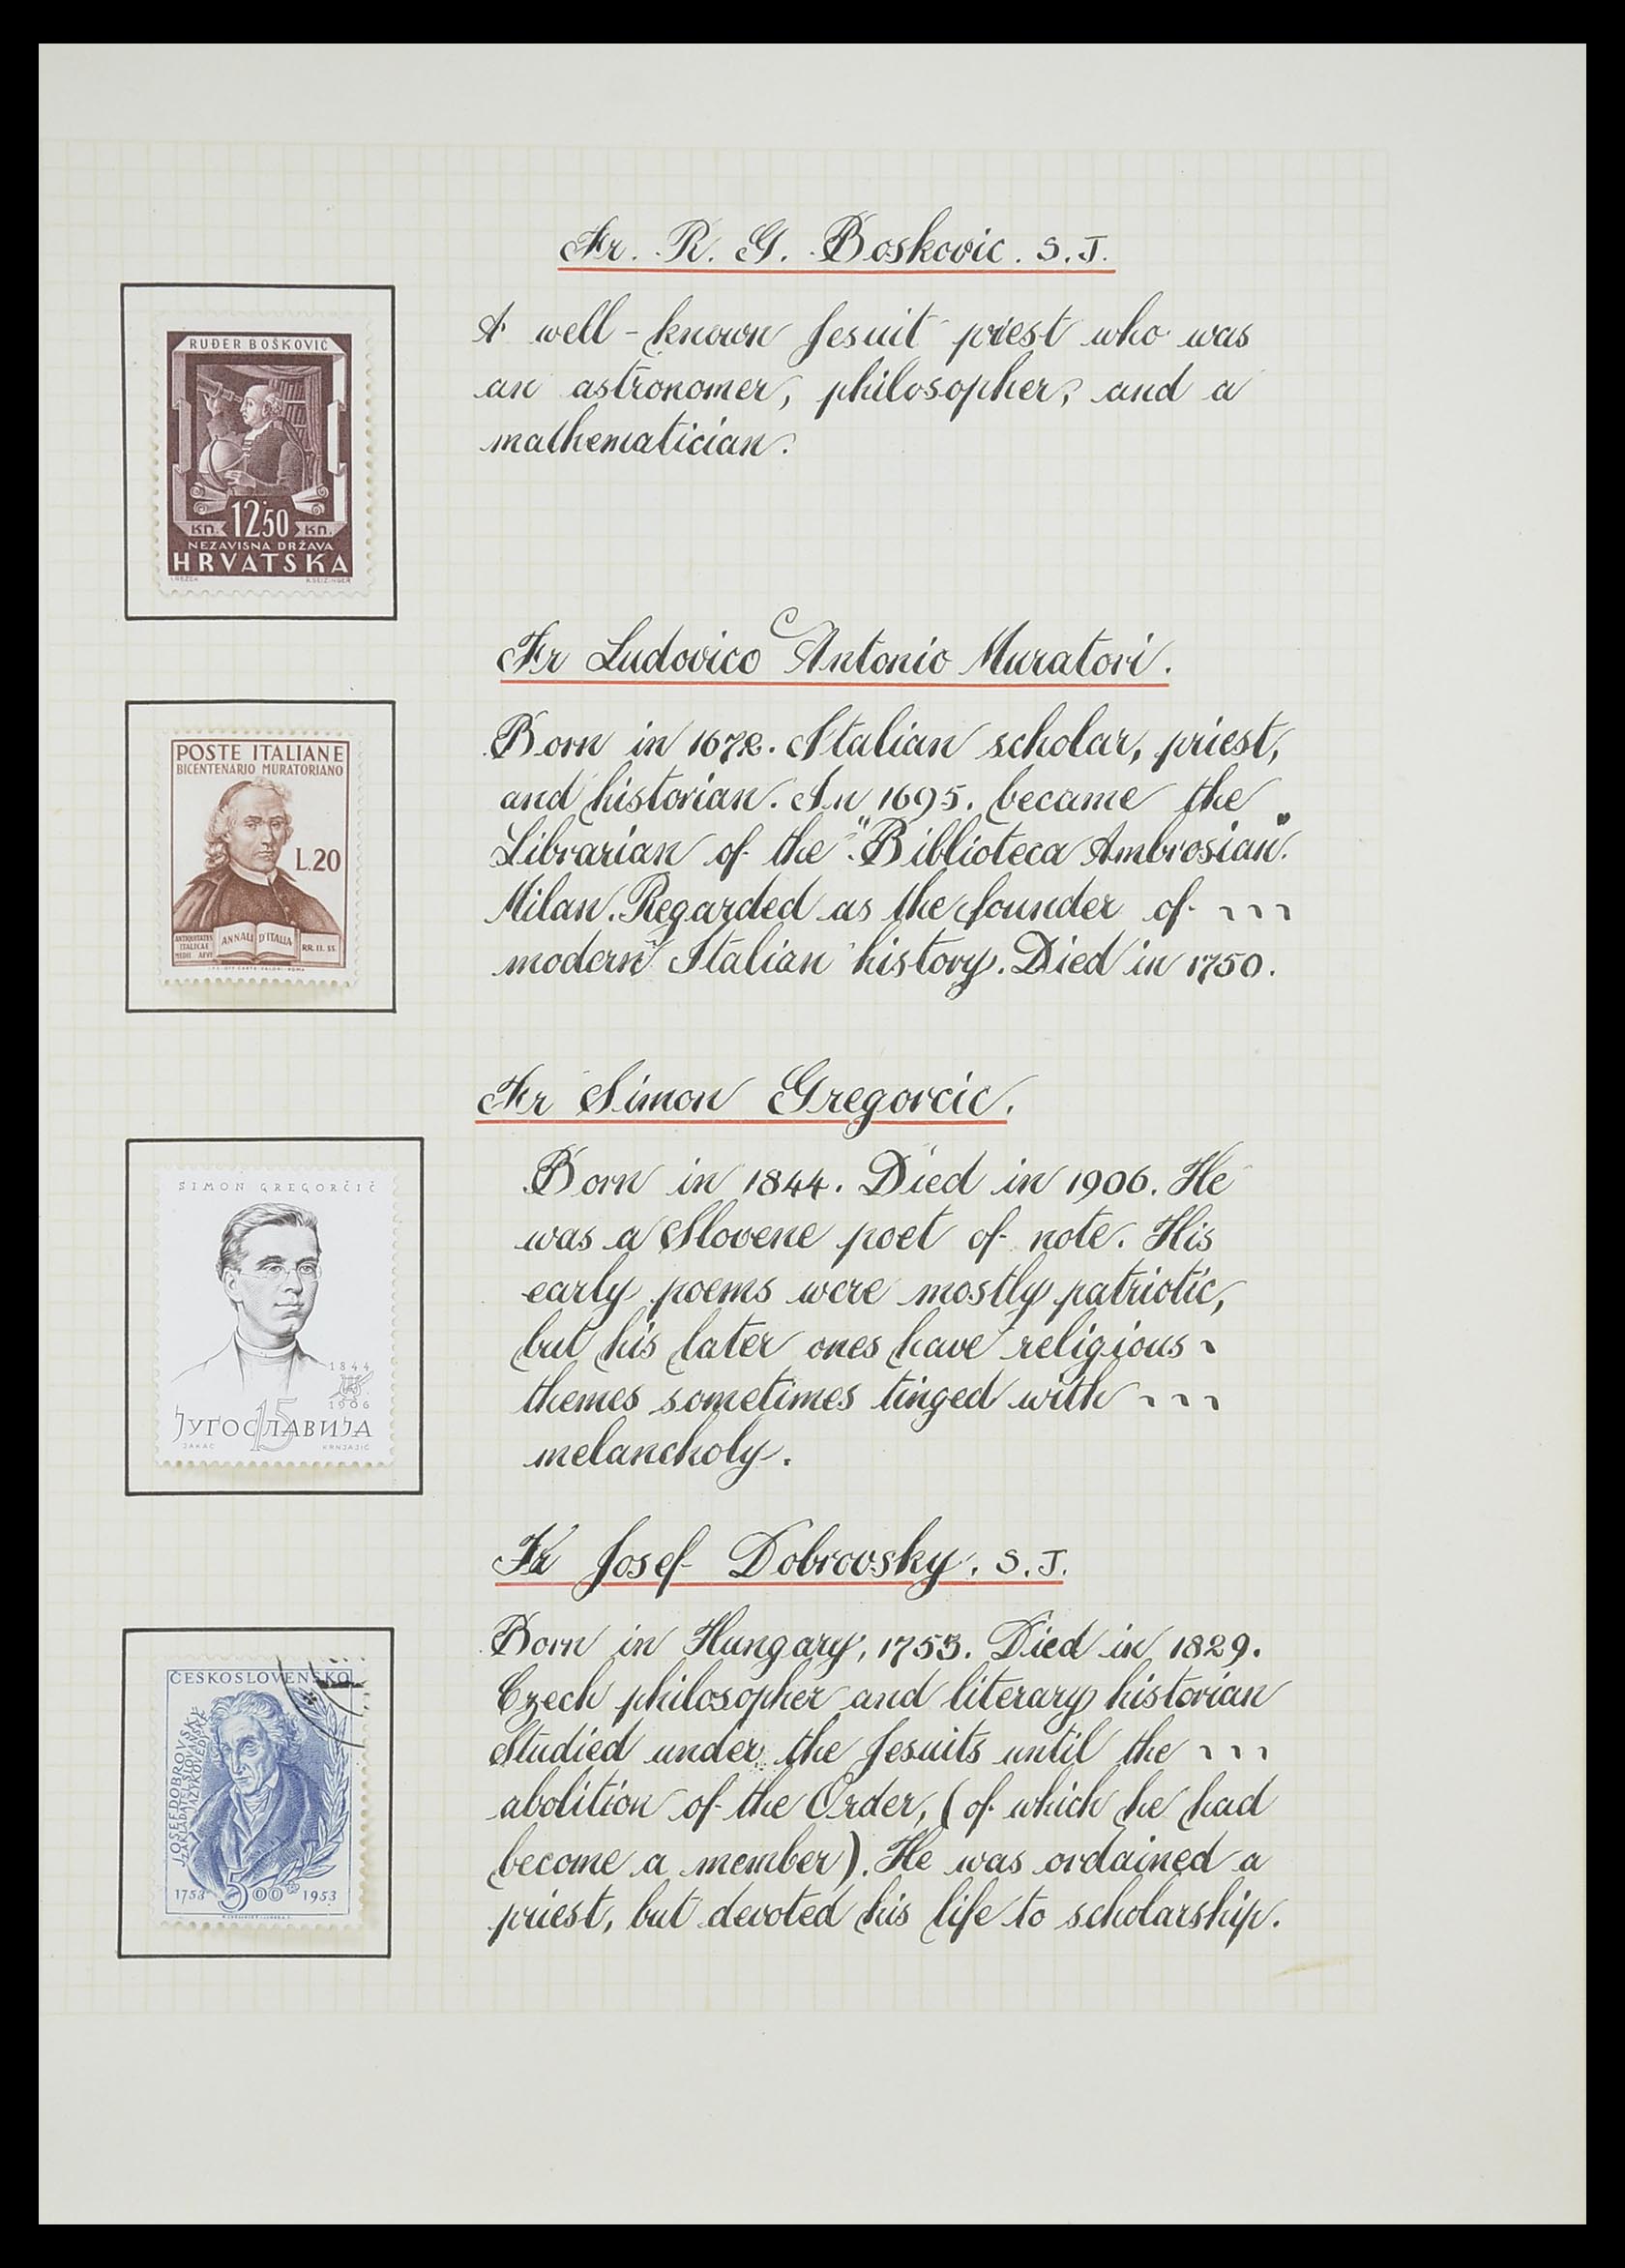 Fr. R. G. Boskovic. S.J.
RUĐER BOŠKOVIĆ
12.50
KN. KN.
NEZAVISNA DRŽAVA
HRVATSKA
A well-known Jesuit priest who was
an astronomer, philosopher, and a
mathematician.
Fr Ludovico Antonio Muratori.
POSTE ITALIANE
BICENTENARIO MURATORIANO
L.20
ANTIQUITATES
ITALICAE
MEDII AEVI
ANNALI D'ITALIA
RR. II. SS.
Born in 1672. Italian scholar, priest,
and historian. In 1695. became the
Librarian of the "Biblioteca Ambrosian".
Milan. Regarded as the founder of
modern Italian history. Died in 1750.
Fr Simon Gregorcic.
SIMON GREGORČIČ
1844
1906
15
ЈУГОСЛАВИЈА
JAKAC KRNJAJIĆ
Born in 1844. Died in 1906. He
was a Slovene poet of note. His
early poems were mostly patriotic,
but his later ones have religious
themes sometimes tinged with
melancholy.
Fr Josef Dobrovsky. S.J.
ČESKOSLOVENSKO
JOSEF DOBROVSKÝ
ZAKLADATEL SLOVANSKÉ
JAZYKOVĚDY
1753 5.00 1953
Born in Hungary, 1753. Died in 1829.
Czech philosopher and literary historian
Studied under the Jesuits until the
abolition of the Order, (of which he had
become a member). He was ordained a
priest, but devoted his life to scholarship.